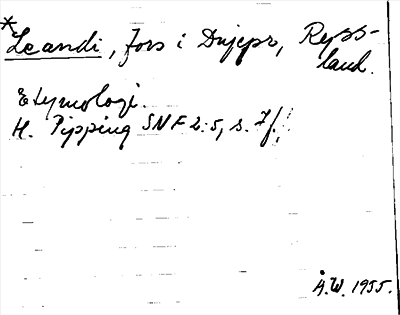 *Leandi, fors i Dnjepr, Ryss-
land.
Etymologi.
H. Pipping SNF 2:5, s. 7f.!
Å.W. 1955.